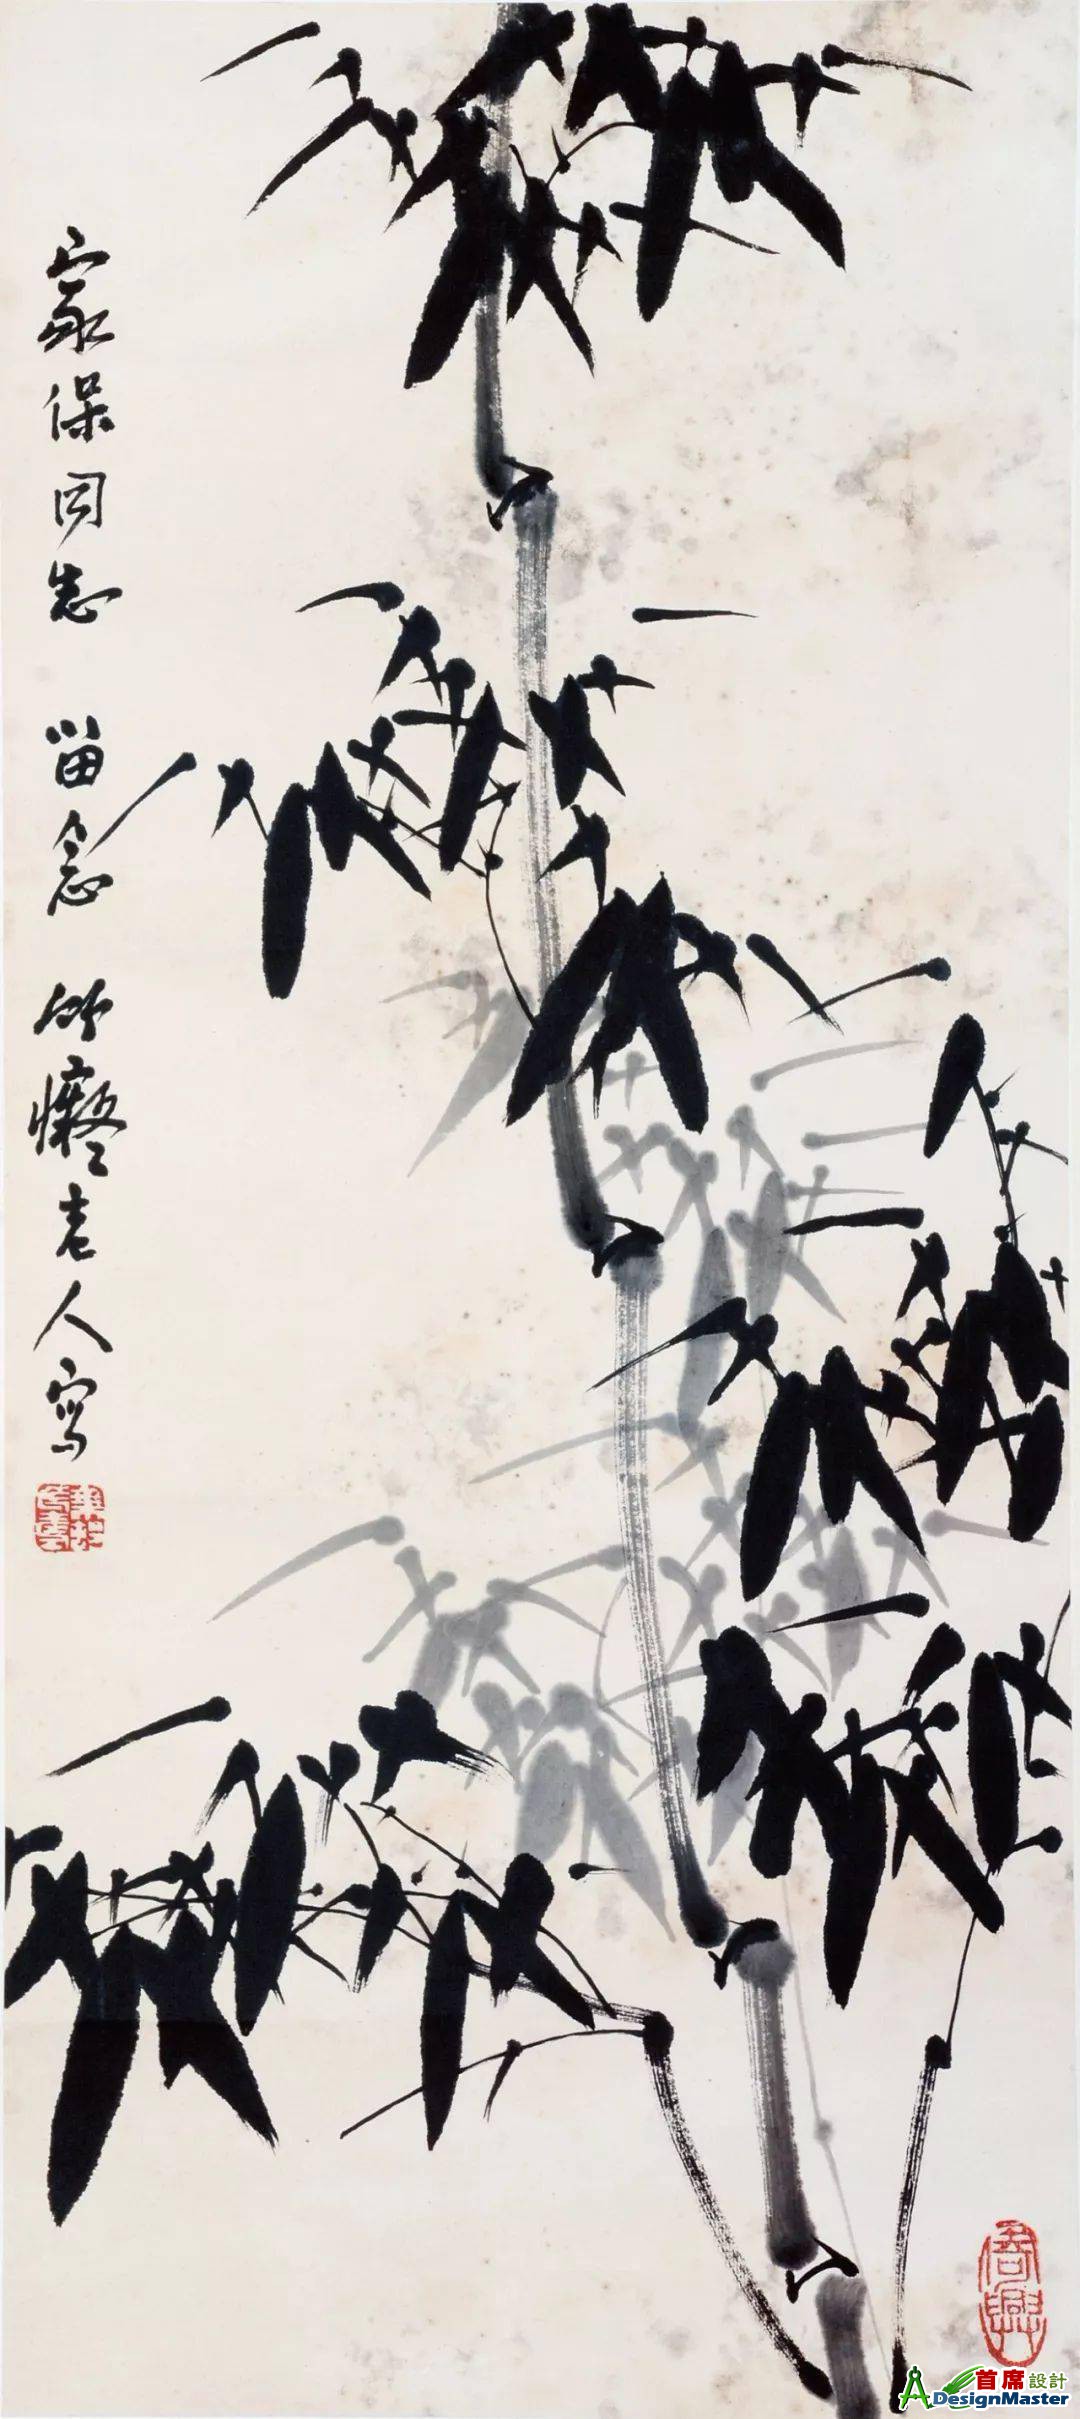 家保同志 留念 老人寫
首席設計
DesignMaster